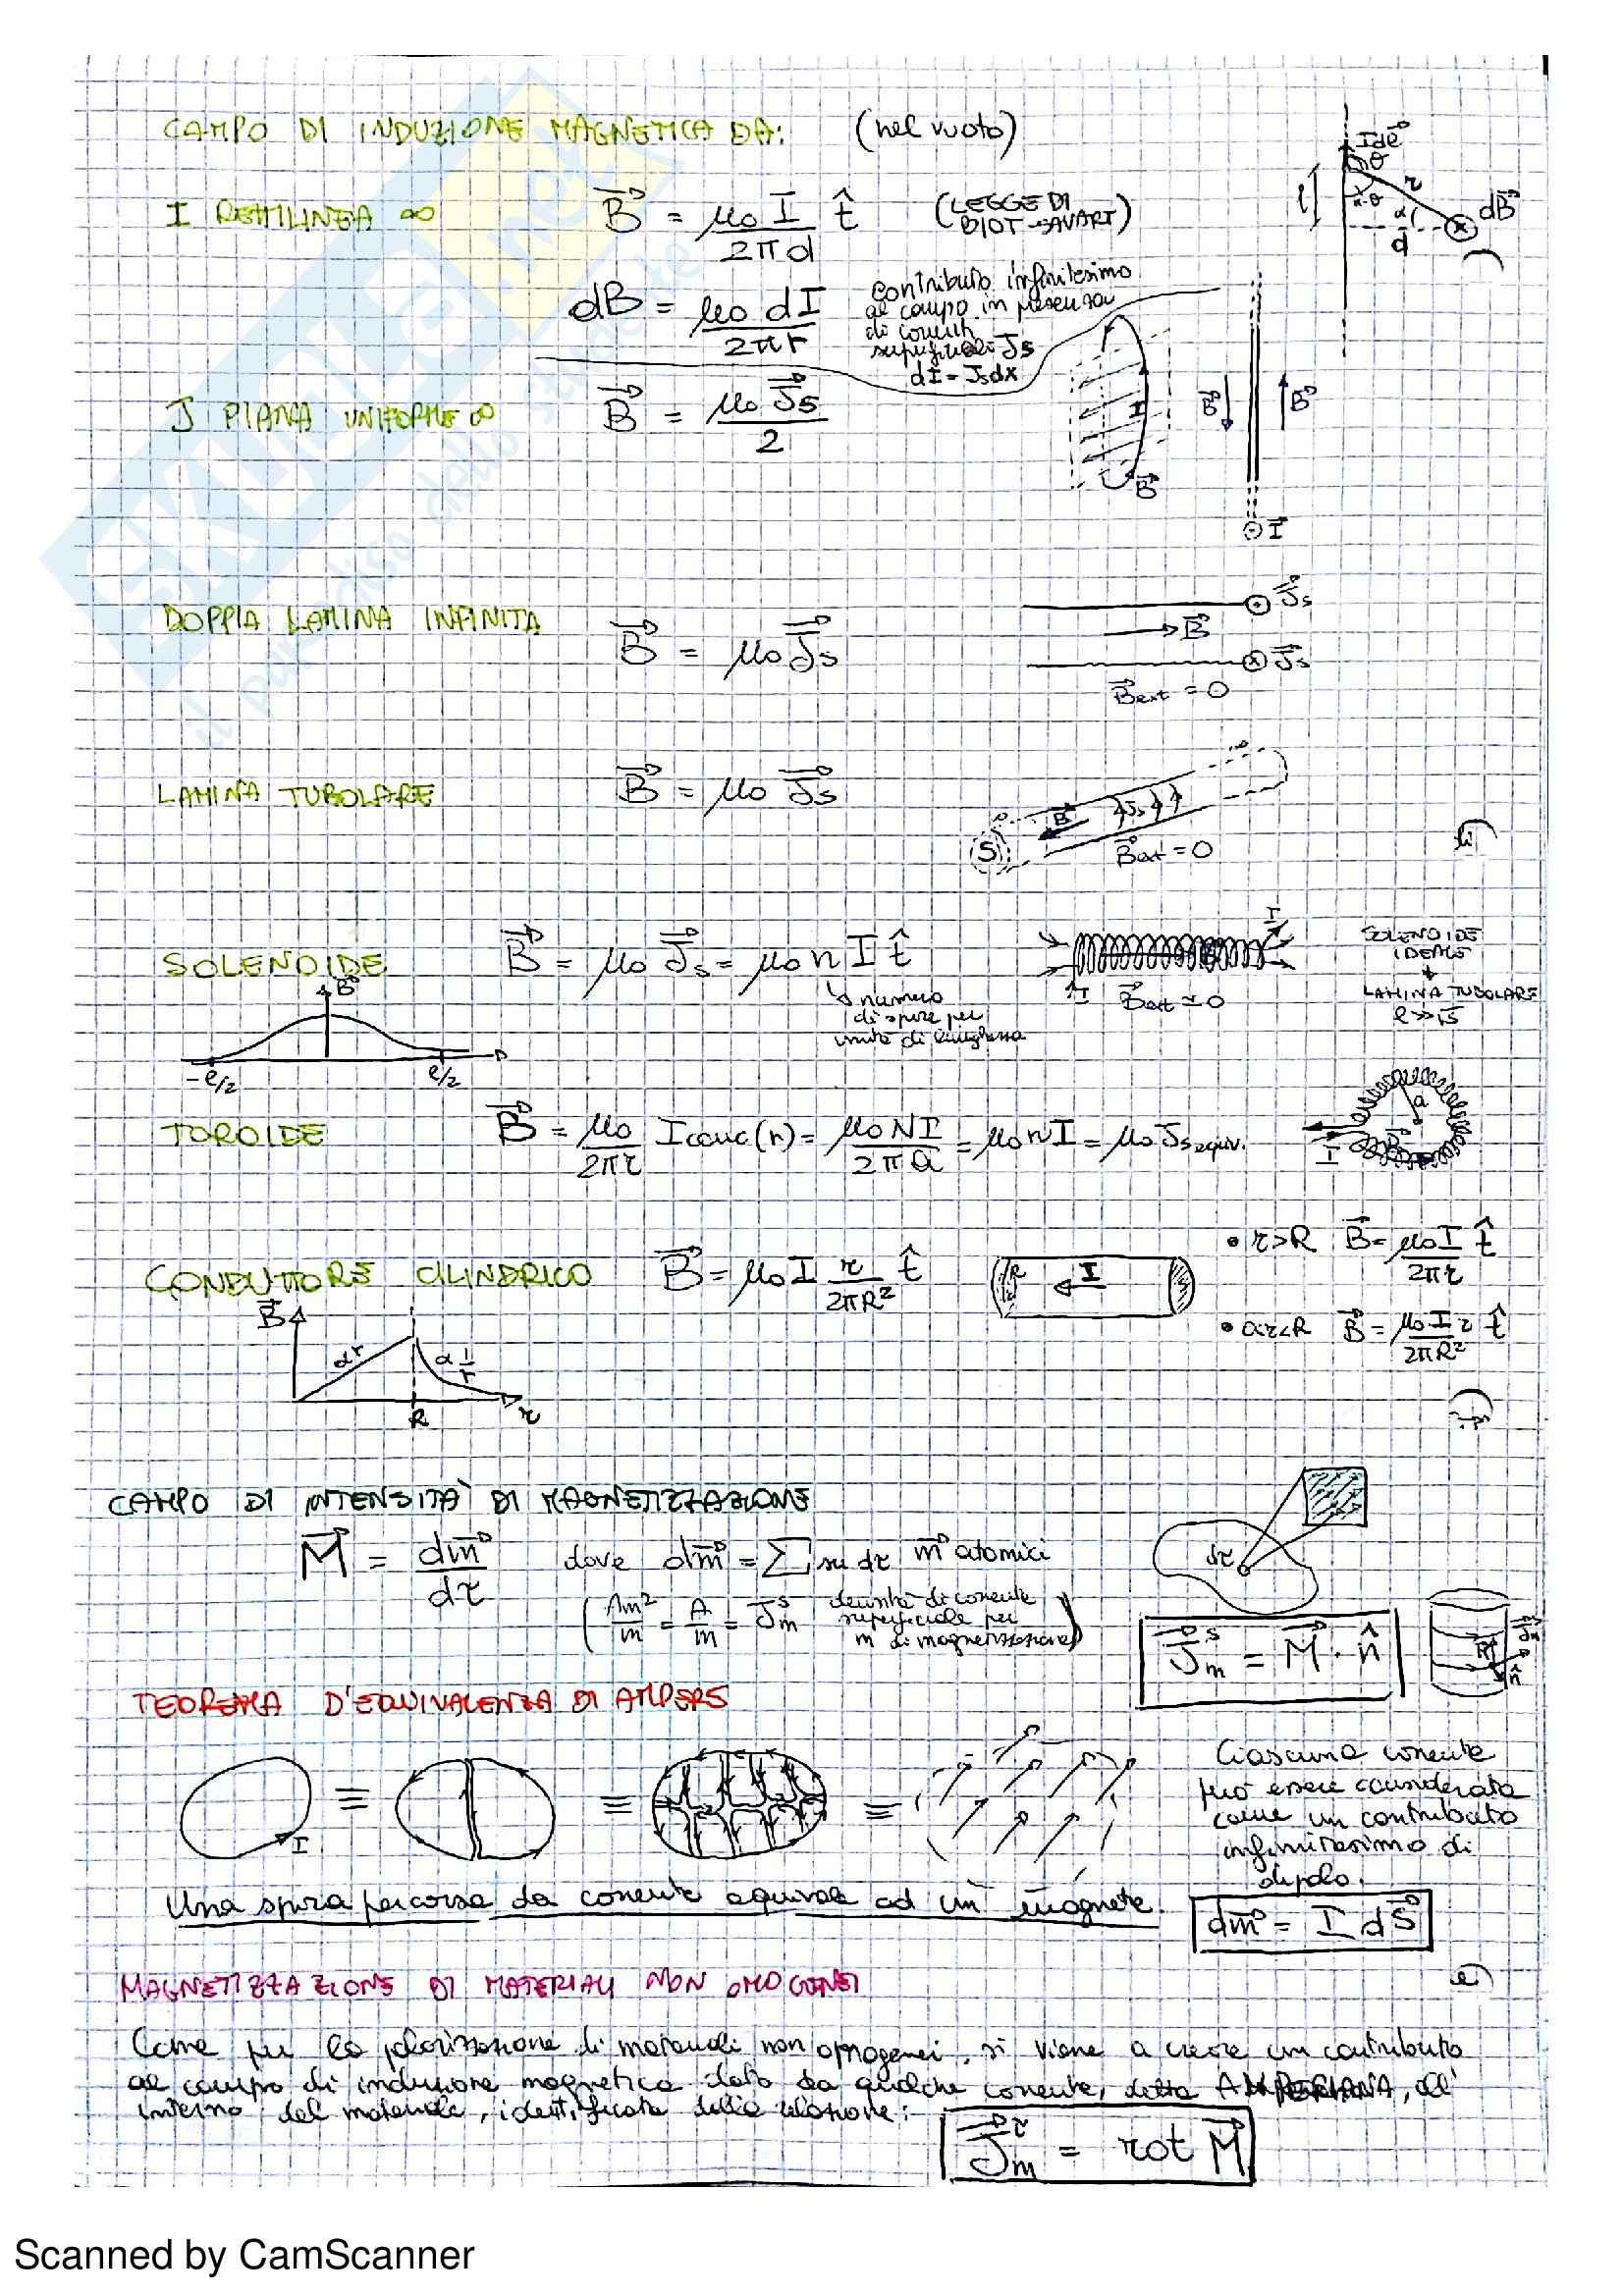 CAMPO DI INDUZIONE MAGNETICA DA: (nel vuoto)
I RETTILINEA ∞ B⃗ = μ₀ I / 2πd t̂ (LEGGE DI BIOT-SAVART)
I dl⃗ θ r l π-θ α d dB⃗
dB = μ₀ dI / 2πr
contributo infinitesimo
al campo in presenza
di correnti
superficiali Js
dI = Js dx
J PIANA UNIFORME ∞ B⃗ = μ₀ J⃗s / 2
I B⃗ B⃗ B⃗
I⃗
DOPPIA LAMINA INFINITA B⃗ = μ₀ J⃗s
J⃗s
B⃗
J⃗s
B⃗ext = 0
LAMINA TUBOLARE B⃗ = μ₀ J⃗s
S B⃗ Js B⃗ext = 0
SOLENOIDE B⃗ = μ₀ J⃗s = μ₀ n I t̂
numero
di spire per
unità di lunghezza
I I B⃗ext ≃ 0
SOLENOIDE
IDEALE
LAMINA TUBOLARE
l >> √S
B⃗ -l/2 l/2
TOROIDE B⃗ = μ₀ / 2πr Iconc(r) = μ₀ N I / 2πa = μ₀ n I = μ₀ Js equiv.
a B⃗ I
CONDUTTORE CILINDRICO B⃗ = μ₀ I r / 2πR² t̂
R I
• r>R B⃗ = μ₀ I / 2πr t̂
• 0<r<R B⃗ = μ₀ I r / 2πR² t̂
B⃗ αr α 1/r R r
CAMPO DI INTENSITÀ DI MAGNETIZZAZIONE
M⃗ = dm⃗ / dτ dove dm⃗ = ∑ su dτ m⃗ atomici
(Am²/m = A/m = Jₘˢ densità di corrente superficiale per m di magnetizzazione)
dτ
J⃗ₘˢ = M⃗ · n̂
n̂
TEOREMA D'EQUIVALENZA DI AMPERE
I ≡ ≡ ≡
Ciascuna corrente
può essere considerata
come un contributo
infinitesimo di
dipolo.
Una spira percorsa da corrente equivale ad un magnete.
dm⃗ = I dS⃗
MAGNETIZZAZIONE DI MATERIALI NON OMOGENEI
Come per la polarizzazione di materiali non omogenei, si viene a creare un contributo
al campo di induzione magnetica dato da qualche corrente, detta AMPERIANA, all'
interno del materiale, identificata dalla relazione:
J⃗ₘᵗ = rot M⃗
SKUOLA.net
il paradiso dello studente
Scanned by CamScanner